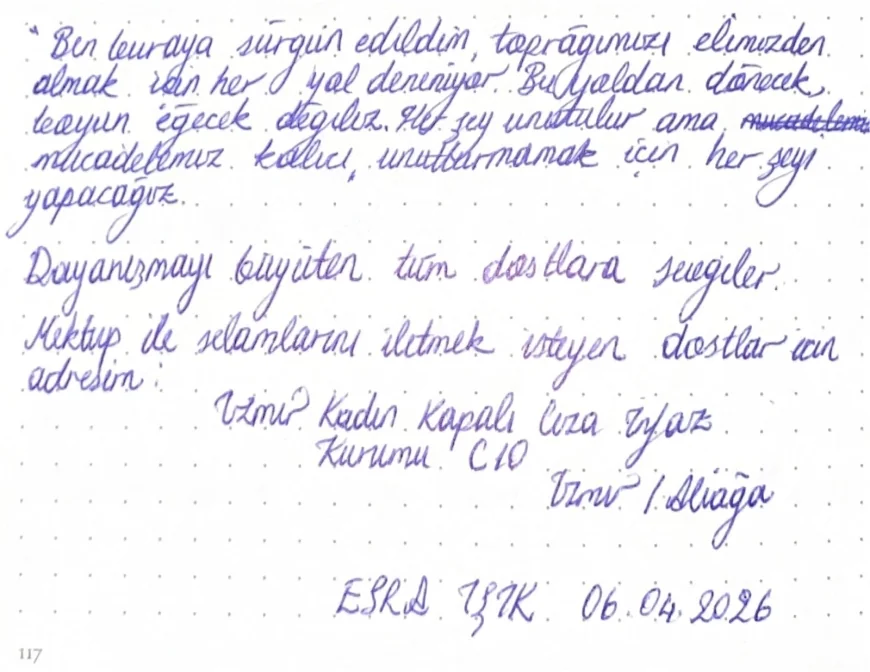 " Ben buraya sürgün edildim, toprağımızı elimizden
almak için her yol deneniyor. Bu yoldan dönecek,
boyun eğecek değiliz. Her şey unutulur ama mücadelemiz
mücadelemiz kalıcı, unutturmamak için her şeyi
yapacağız.
Dayanışmayı büyüten tüm dostlara sevgiler.
Mektup ile selamlarını iletmek isteyen dostlar için
adresim:
İzmir Kadın Kapalı Ceza İnfaz
Kurumu C10
İzmir / Aliağa
ESRA IŞIK 06.04.2026
117